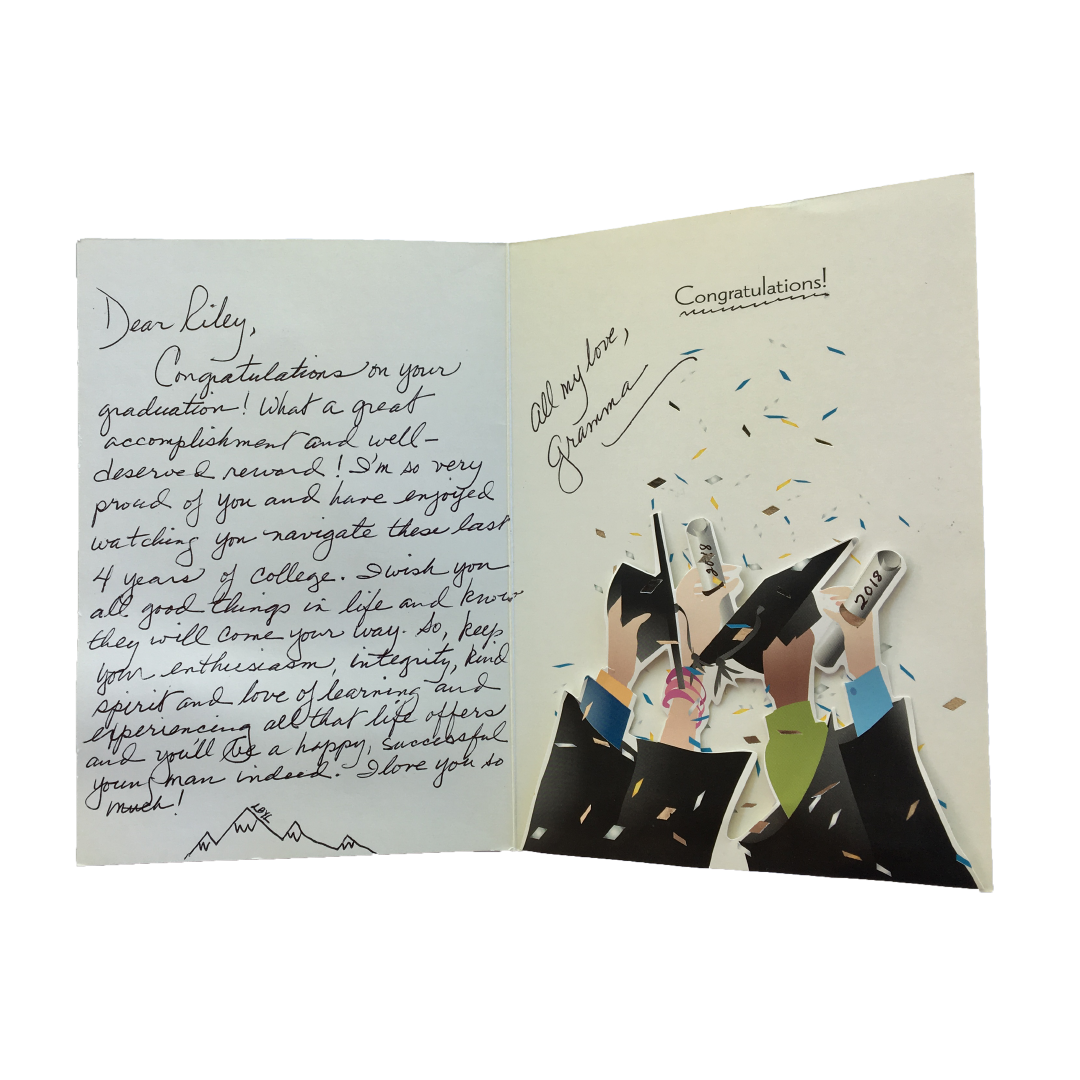 Dear Riley,
Congratulations on your
graduation! What a great
accomplishment and well-
deserved reward! I'm so very
proud of you and have enjoyed
watching you navigate these last
4 years of college. I wish you
all good things in life and know
they will come your way. So, keep
your enthusiasm, integrity, kind
spirit and love of learning and
experiencing all that life offers
and you'll be a happy, successful
young man indeed. I love you so
much!
Congratulations!
All my love,
Gramma
2018
2018